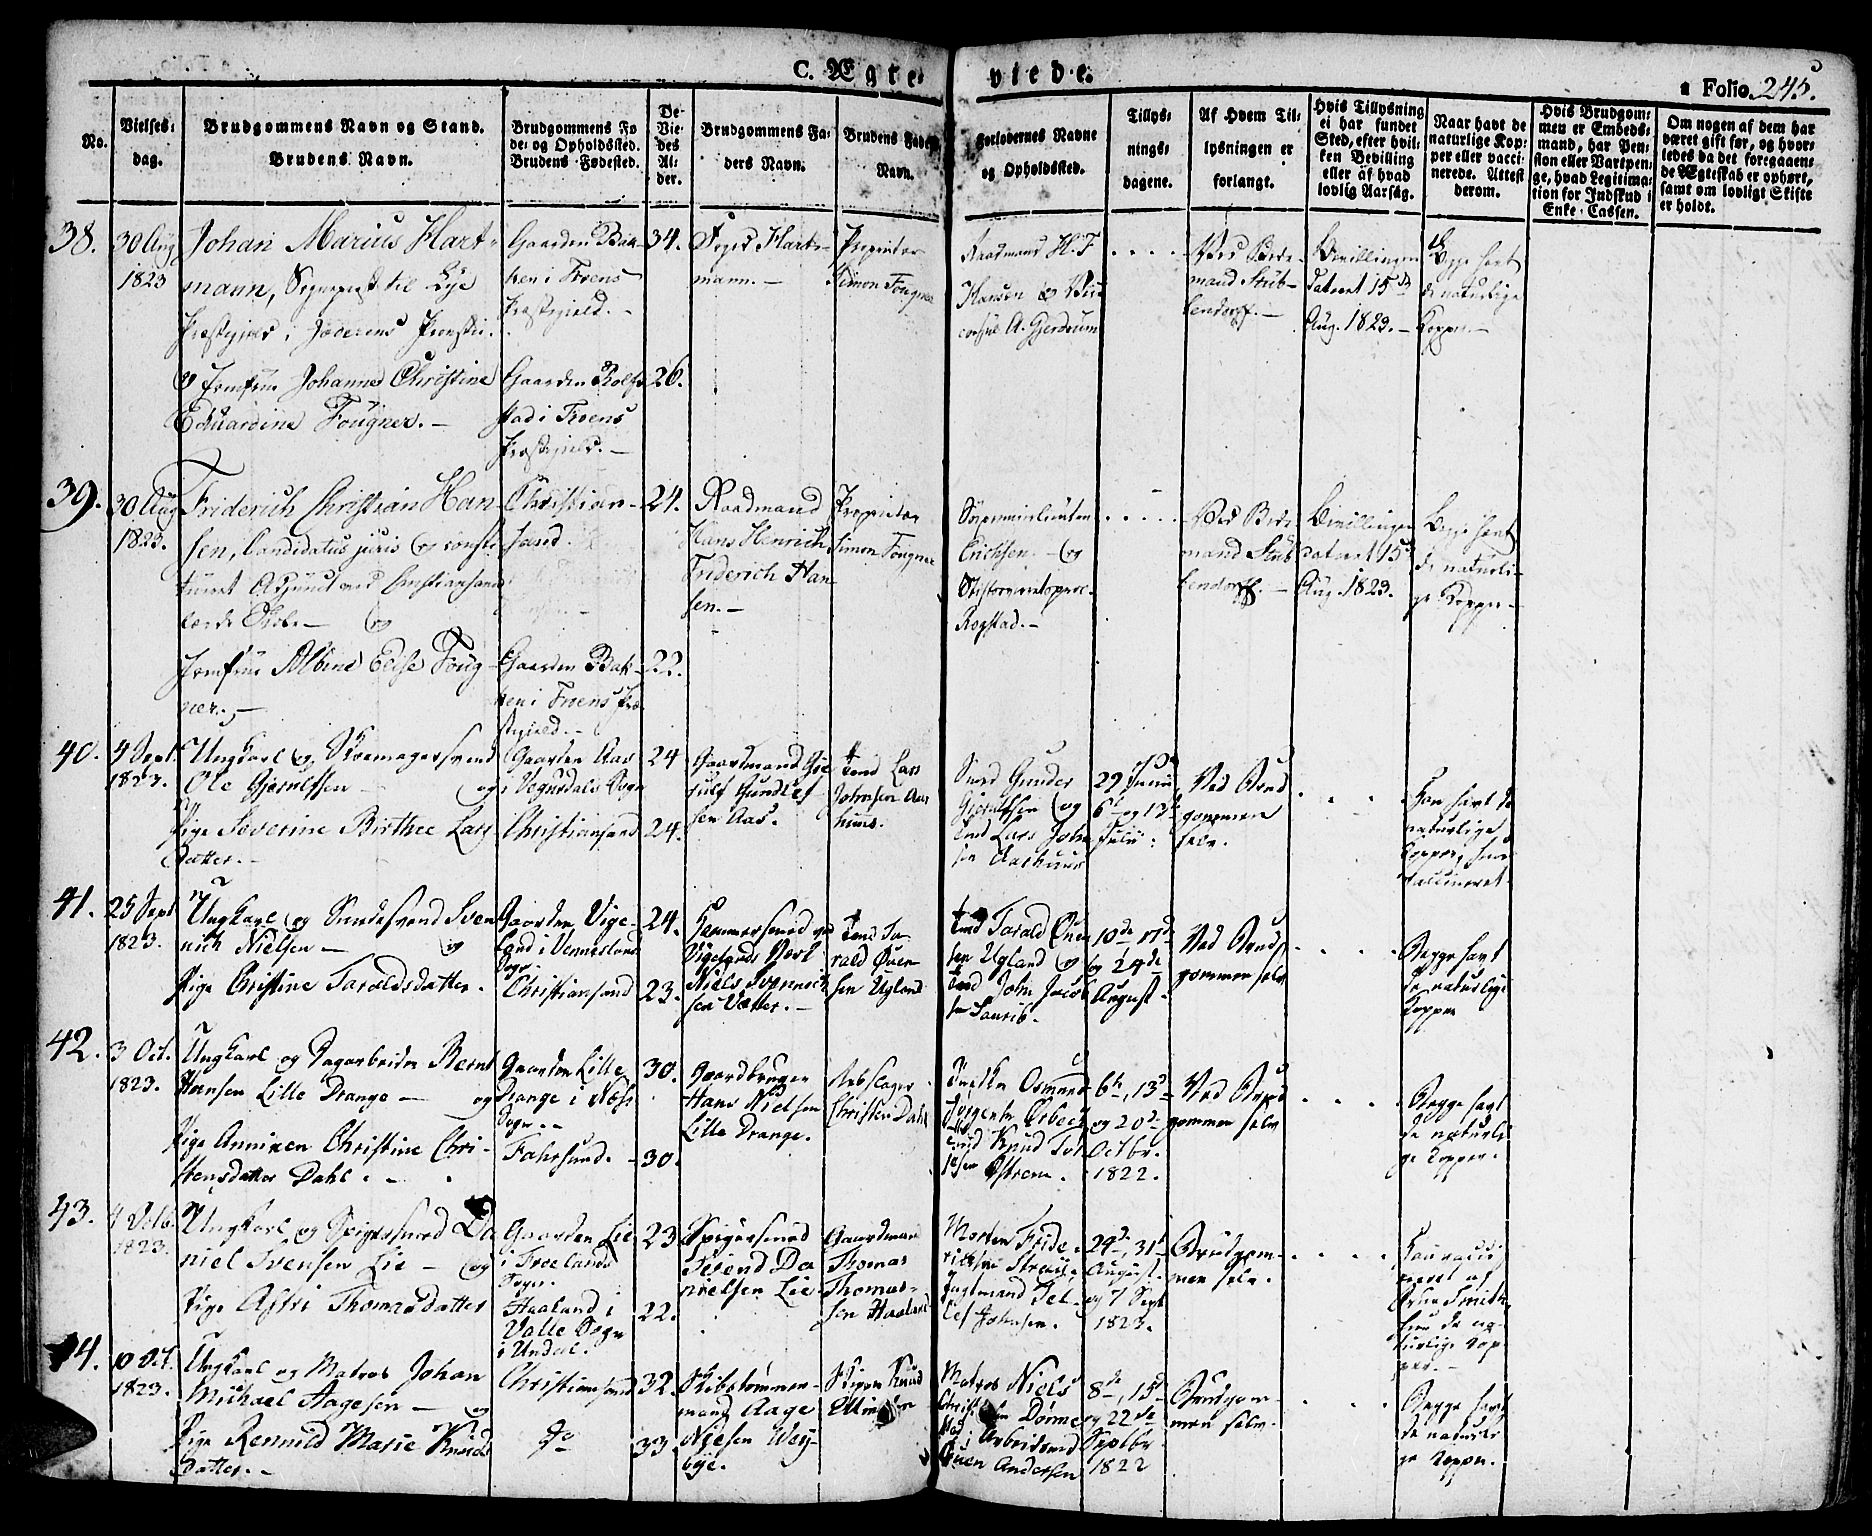 C. Ægte-
viede.
a Folio 245.
No.
Vielses-
dag.
Brudgommens Navn og Stand.
Brudens Navn.
Brudgommens Fø
de- og Opholdsted.
Brudens Fødested.
De
Vie-
des
Al-
der.
Brudgommens Fa-
ders Navn.
Brudens Faders
Navn.
Forlovernes Navne
og Opholdssted.
Tillys-
nings-
dagene.
Af Hvem Til-
lysningen er
forlangt.
Hvis Tillysning
ei har fundet
Sted, efter hvil-
ken Bevilling
eller af hvad
lovlig Aarsag.
Naar havt de
naturlige Kop-
per eller vacci-
nerede. Attest
derom.
Hvis Brudgom-
men er Embeds-
mand, har Pen-
sion eller Vartpen-
ge, hvad Legitima-
tion for Indskud i
Enke-Cassen.
Om nogen af dem har
været gift før, og hvor-
ledes da det foregaaen-
de Ægteskab er ophørt,
samt om lovligt Skifte
er holdt.
38.
30 Aug
1823
Johan Marius Hart-
mann, Sognepræst til Lye
Præstegield i Jæderens Provsti
og Jomfrue Johanne Christine
Eduardine Fougner.
Gaarden Bak-
ken i Froens
Præstegield.
Gaarden Rolf-
stad i Froens
Præstegield.
34.
26.
Hart-
mann.
Proprietær
Simon Fougner
Raadmand H. F
Hansen og Vice
consul A. Gjerdrum
Ved Bede-
mand Stub-
bendorff.
Bevillingen
dateret 15de
Aug. 1823.
Begge havt
de naturlige
Kopper.
39.
30 Aug
1823.
Friderich Christian Han
sen, Candidatus juris og consti
tueret Adjunct ved Christiansands
lærde Skole og
Jomfrue Albine Edse Foug-
ner.
Christian-
sand.
Gaarden Bak-
ken i Froens Præ-
stegield.
24.
22.
Raadmand
Hans Henrich
Friderich Han-
sen.
Proprietær
Simon Fougner
Erichsen og
Rogstad.
Ved Bede
mand Stub
bendorff.
Bevillingen
dateret 15de
Aug. 1823.
Begge havt
de naturli-
ge Kopper
40.
4 Sept.
1823.
Ungkarl og Skomagersvend
Ole Gjerulfsen og
Pige Severine Birthee Lars
Datter.
Gaarden Aas
i Vegusdals Sogn
Christiansand
24
24.
Gaardmand Gje
rulf Gundlef
sen Aas.
Lars
Johnsen Aar
huus.
Gunder
Gjerulfsen og
Lars John
sen Aarhuus
29 Junii
6te og 13de
Julii.
Ved Brud
gommen
selv.
Han havt de
naturlige
Kopper, hun
vaccineret.
41.
25 Sept
1823.
Ungkarl og Smedesvend Sven
nich Nielsen og
Pige Christine Taroldsdatter.
Gaarden Vige-
land i Vennesland
Sogn
Christiansand
24.
23.
Hammersmed ved
Vigelands Værk
Niels Svennich
sen Vatter.
Ta
rald Øven
sen Ugland
Tarald Øven
sen Ugland og
John Jacob
sen
10de 17de
og 24de
August.
Ved Brud
gommen selv
Begge havt
de naturlige
Kopper
42.
3 Oct.
1823.
Ungkarl og Dagarbeider Bernt
Hansen Lille Drange og
Pige Anniken Christine Chri-
stensdatter Dahl.
Gaarden Lille
Drange i Næs
Sogn.
Fahrsund.
30.
30.
Gaardbruger
Hans Nielsen
Lille Drange.
Rebslager
Christen Dahl
Osmund
Knud Tor
Østrem.
6te, 13de
og 20de
Octbr.
1822.
Ved Brud
gommen selv
Begge havt
de naturli
ge Kopper.
43.
4 Octb.
1823.
Ungkarl og Spigersmed Da
niel Svensen Lie og
Pige Astri Thomasdatter
Gaarden Lie
i Froelands
Sogn.
Haaland i
Valle Sogn
i Undal.
23
22.
Spigersmed
Svend Da
nielsen Lie
Gaardmand
Thomas
Thomas-
sen Haaland
Morten Fride-
Johnsen.
24de, 31te
August.
og 7 Sept
1823.
Brudgom-
men selv.
Han vacci
neret af
Smith,
hun de na-
turlige Kop
per.
44.
10 Oct.
1823.
Ungkarl og Matros Johan
Michael Aagesen og
Pige Rennild Marie Knuds
Datter.
Christiansand
do
32.
33.
Skibstømmer-
mand Aage
Nielsen Wey-
bye.
Skipper Knud
Matros Niels
Arbeidsmand
Andersen
8de, 15de
og 22de
Septbr
1822
Brudgom-
men selv.
Begge havt
de naturli
ge Kopper.